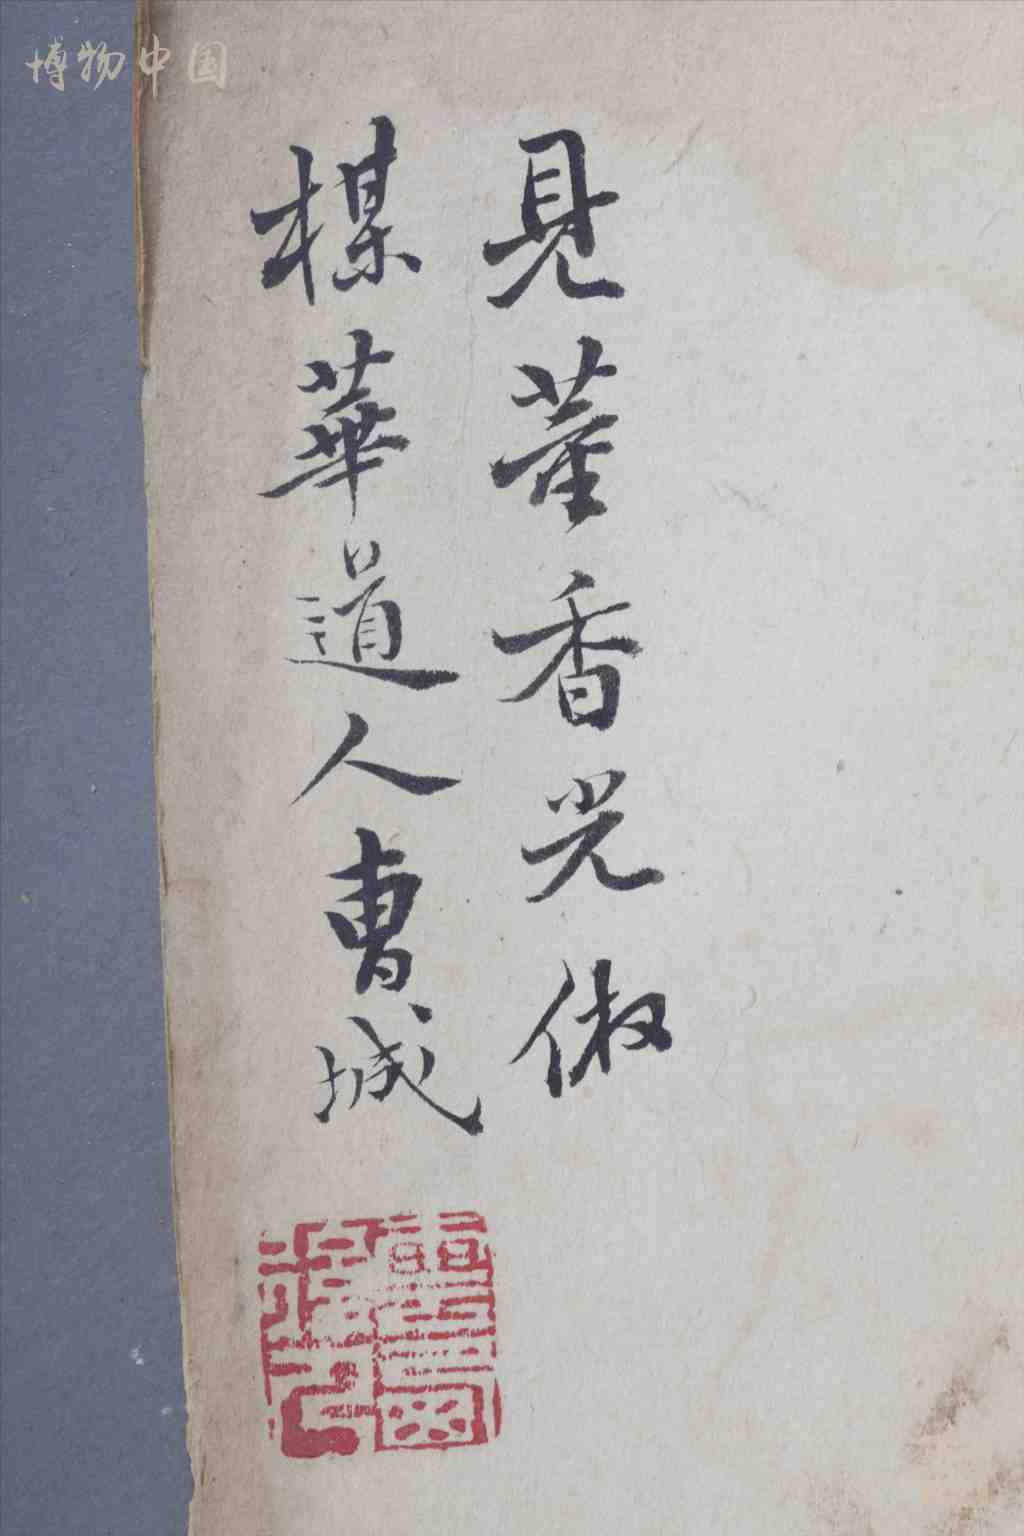 博物中国
見董香光倣
楳華道人曹城